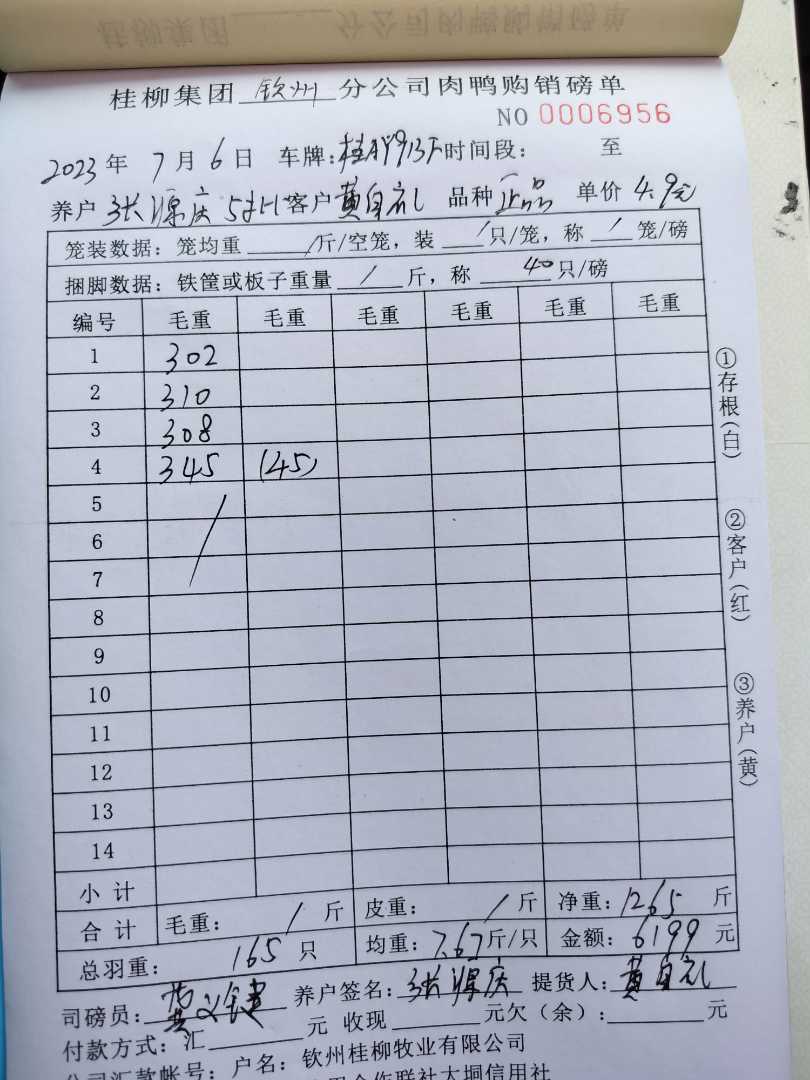 桂柳集团 钦州 分公司肉鸭购销磅单
NO 0006956
2023年 7月 6日 车牌: 时间段: 至
养户 张源庆 客户 黄自礼 品种 正品 单价 4.9元
笼装数据: 笼均重 / 斤/空笼, 装 / 只/笼, 称 / 笼/磅
捆脚数据: 铁筐或板子重量 / 斤, 称 40 只/磅
编号 毛重 毛重 毛重 毛重 毛重 毛重
1 302
2 310
3 308
4 345 (45)
5
6
7
8
9
10
11
12
13
14
小计
合计 毛重: / 斤 皮重: / 斤 净重: 1265 斤
总羽重: 165 只 均重: 7.67斤/只 金额: 6199 元
司磅员: 养户签名: 张源庆 提货人: 黄自礼
付款方式: 汇 元 收现 元欠(余): 元
公司汇款帐号: 户名: 钦州桂柳牧业有限公司
合作联社大垌信用社
①存根(白)
②客户(红)
③养户(黄)